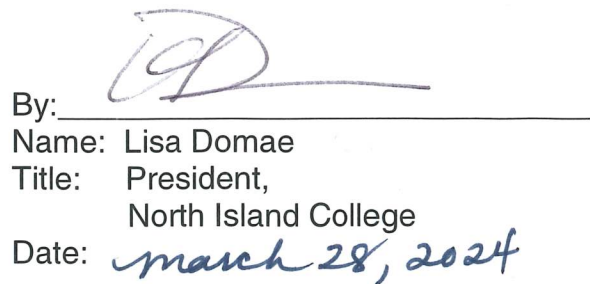 By:
Name: Lisa Domae
Title: President,
North Island College
Date: March 28, 2024